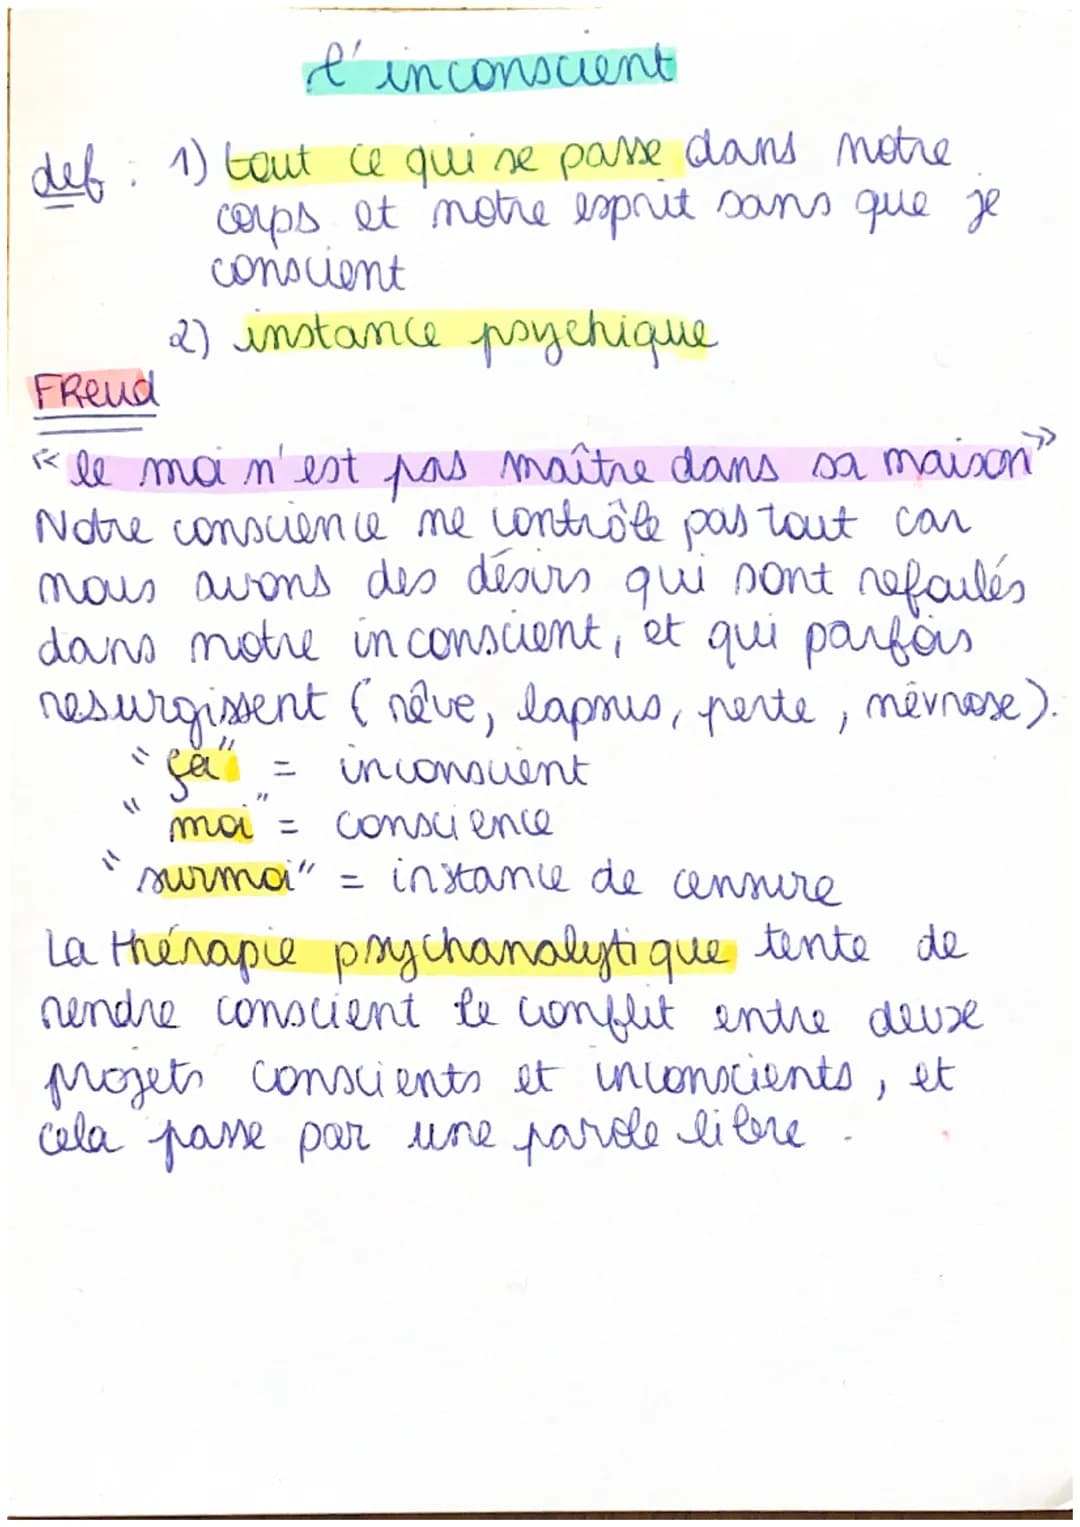 l'inconscient
def : 1) tout ce qui se passe dans notre
corps et notre esprit sans que je
conscient
2) instance psychique
FReud
« le moi n'est pas maître dans sa maison »
Notre conscience ne contrôle pas tout car
nous avons des désirs qui sont refoulés
dans notre inconscient, et qui parfois
resurgissent (rêve, lapsus, perte, névrose).
"ça" = inconscient
"moi" = conscience
"surmoi" = instance de censure
La thérapie psychanalytique tente de
rendre conscient le conflit entre deux
projets conscients et inconscients, et
cela passe par une parole libre.